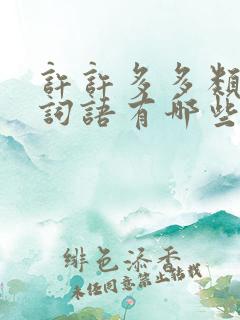 許許多多類
詞語有哪些
緋色添香
未經同意禁止轉載